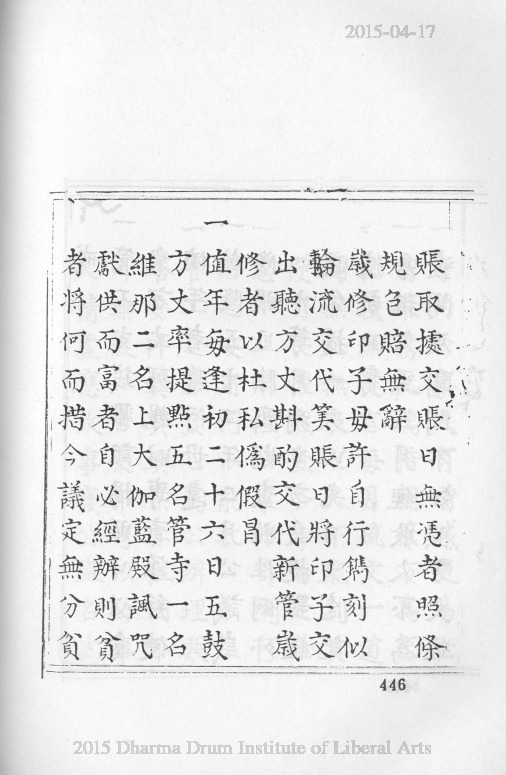 2015-04-17
賬取㨿交賬日無憑者照條
規包賠無辭
歲修印子毋許自行鐫刻似
輪流交代筭賬日將印子交
出聽方丈斟酌交代新管歲
修者以杜私僞假冒
一
值年每逢初二十六日五鼓
方丈率提點五名管寺一名
維那二名上大伽藍殿諷咒
獻供而富者自必經辦則貧
者將何而措今議定無分貧
446
2015 Dharma Drum Institute of Liberal Arts